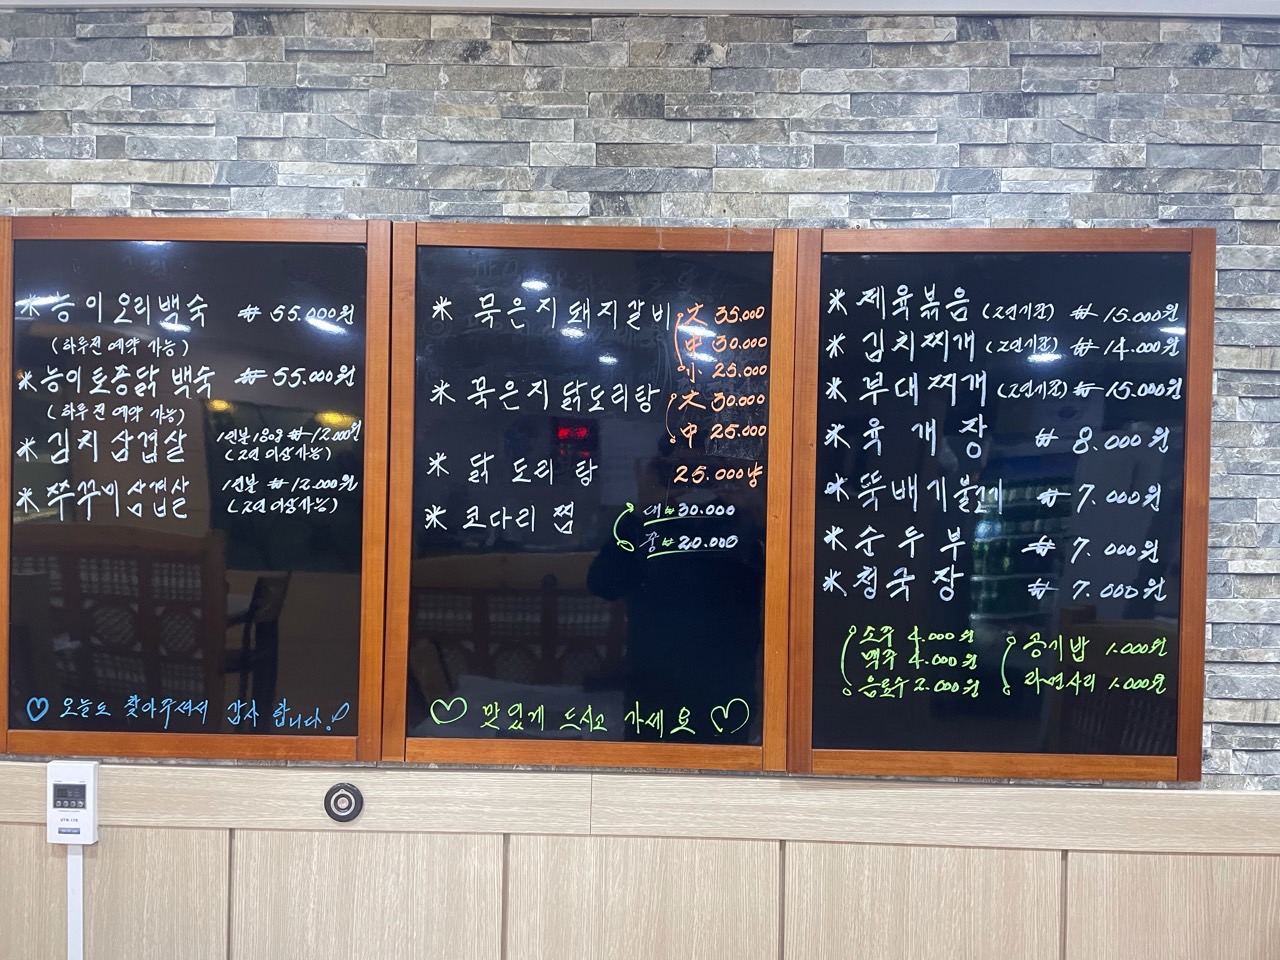 * 능이오리백숙 ₩ 55.000원
(하루전 예약 가능)
* 능이토종닭 백숙 ₩ 55.000원
(하루전 예약 가능)
* 김치삼겹살 1인분 180g ₩12.000원
(2인 이상가능)
* 쭈꾸미삼겹살 1인분 ₩12.000원
(2인 이상가능)
♡ 오늘도 찾아주셔서 감사 합니다!
* 묵은지돼지갈비 大 35.000
中 30.000
小 25.000
* 묵은지닭도리탕 大 30.000
中 25.000
* 닭도리탕 25.000냥
* 코다리찜 대 ₩30.000
중 ₩20.000
♡ 맛있게 드시고 가세요 ♡
* 제육볶음 (2인기준) ₩ 15.000원
* 김치찌개 (2인기준) ₩ 14.000원
* 부대찌개 (2인기준) ₩ 15.000원
* 육개장 ₩ 8.000원
* 뚝배기불고기 ₩ 7.000원
* 순두부 ₩ 7.000원
* 청국장 ₩ 7.000원
소주 4.000원
맥주 4.000원
음료수 2.000원
공기밥 1.000원
라면사리 1.000원